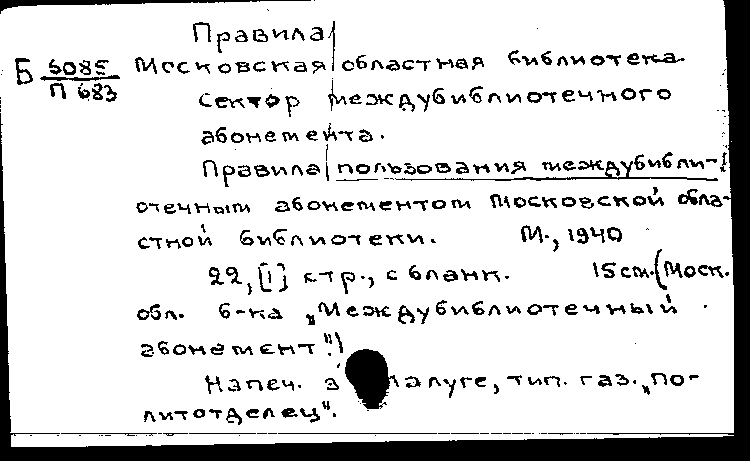 Правила
Б 5085 Московская областная библиотека.
П 683 Сектор междубиблиотечного
абонемента.
Правила пользования междубибли-
отечным абонементом Московской обла-
стной библиотеки. М., 1940
22, [1] стр., с бланк. 15 см. (Моск.
обл. б-ка „Междубиблиотечный
абонемент".)
Напеч. в Калуге, тип. газ. „По-
литотделец".